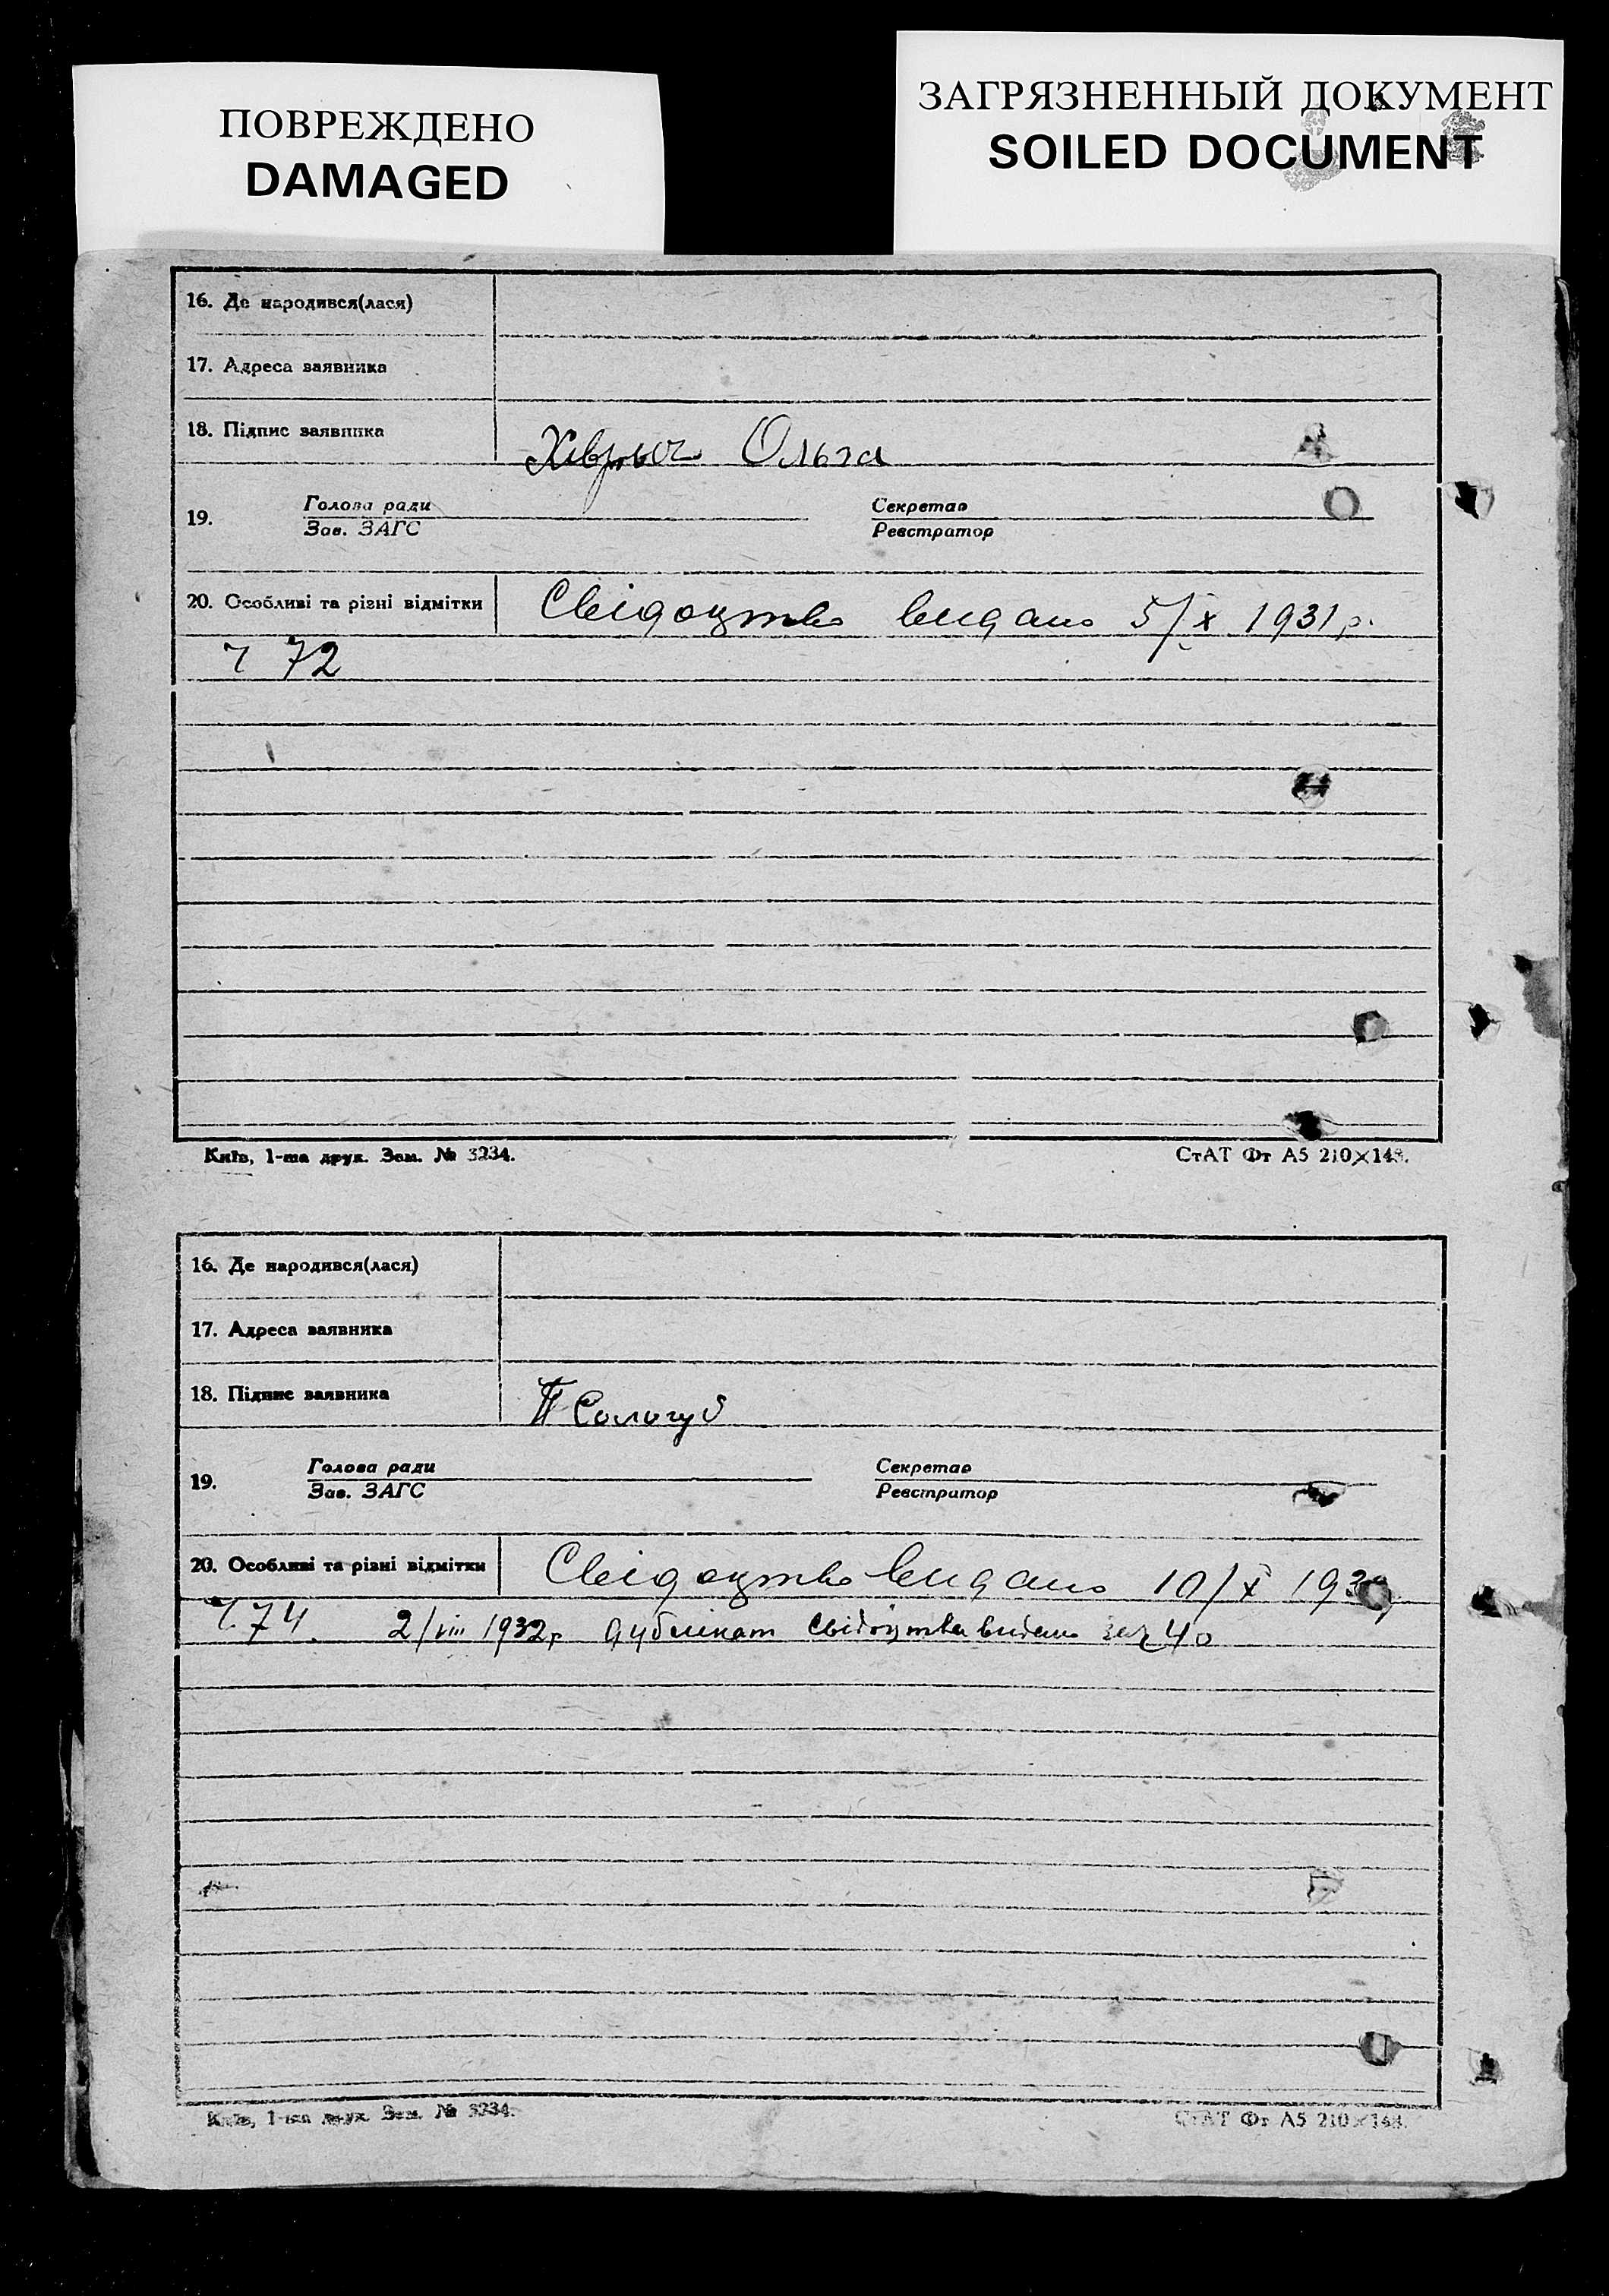 ПОВРЕЖДЕНО
DAMAGED
ЗАГРЯЗНЕННЫЙ ДОКУМЕНТ
SOILED DOCUMENT
16. Де народився(лася)
17. Адреса заявника
18. Підпис заявника Ольга
19. Голова ради Секретар
Зав. ЗАГС Реєстратор
20. Особливі та різні відмітки Свідоцтво видано 5/X 1931 р.
ч 72
Київ, 1-ша друк. Зам. № 3234. СтАТ Фт А5 210×148.
16. Де народився(лася)
17. Адреса заявника
18. Підпис заявника П Сологуб
19. Голова ради Секретар
Зав. ЗАГС Реєстратор
20. Особливі та різні відмітки Свідоцтво видано 10/X 193
ч. 74. 2/VIII 1932р дублікат свідоцтва видано за ч 40
Київ, 1-ша друк. Зам. № 3234. СтАТ Фт А5 210×148.